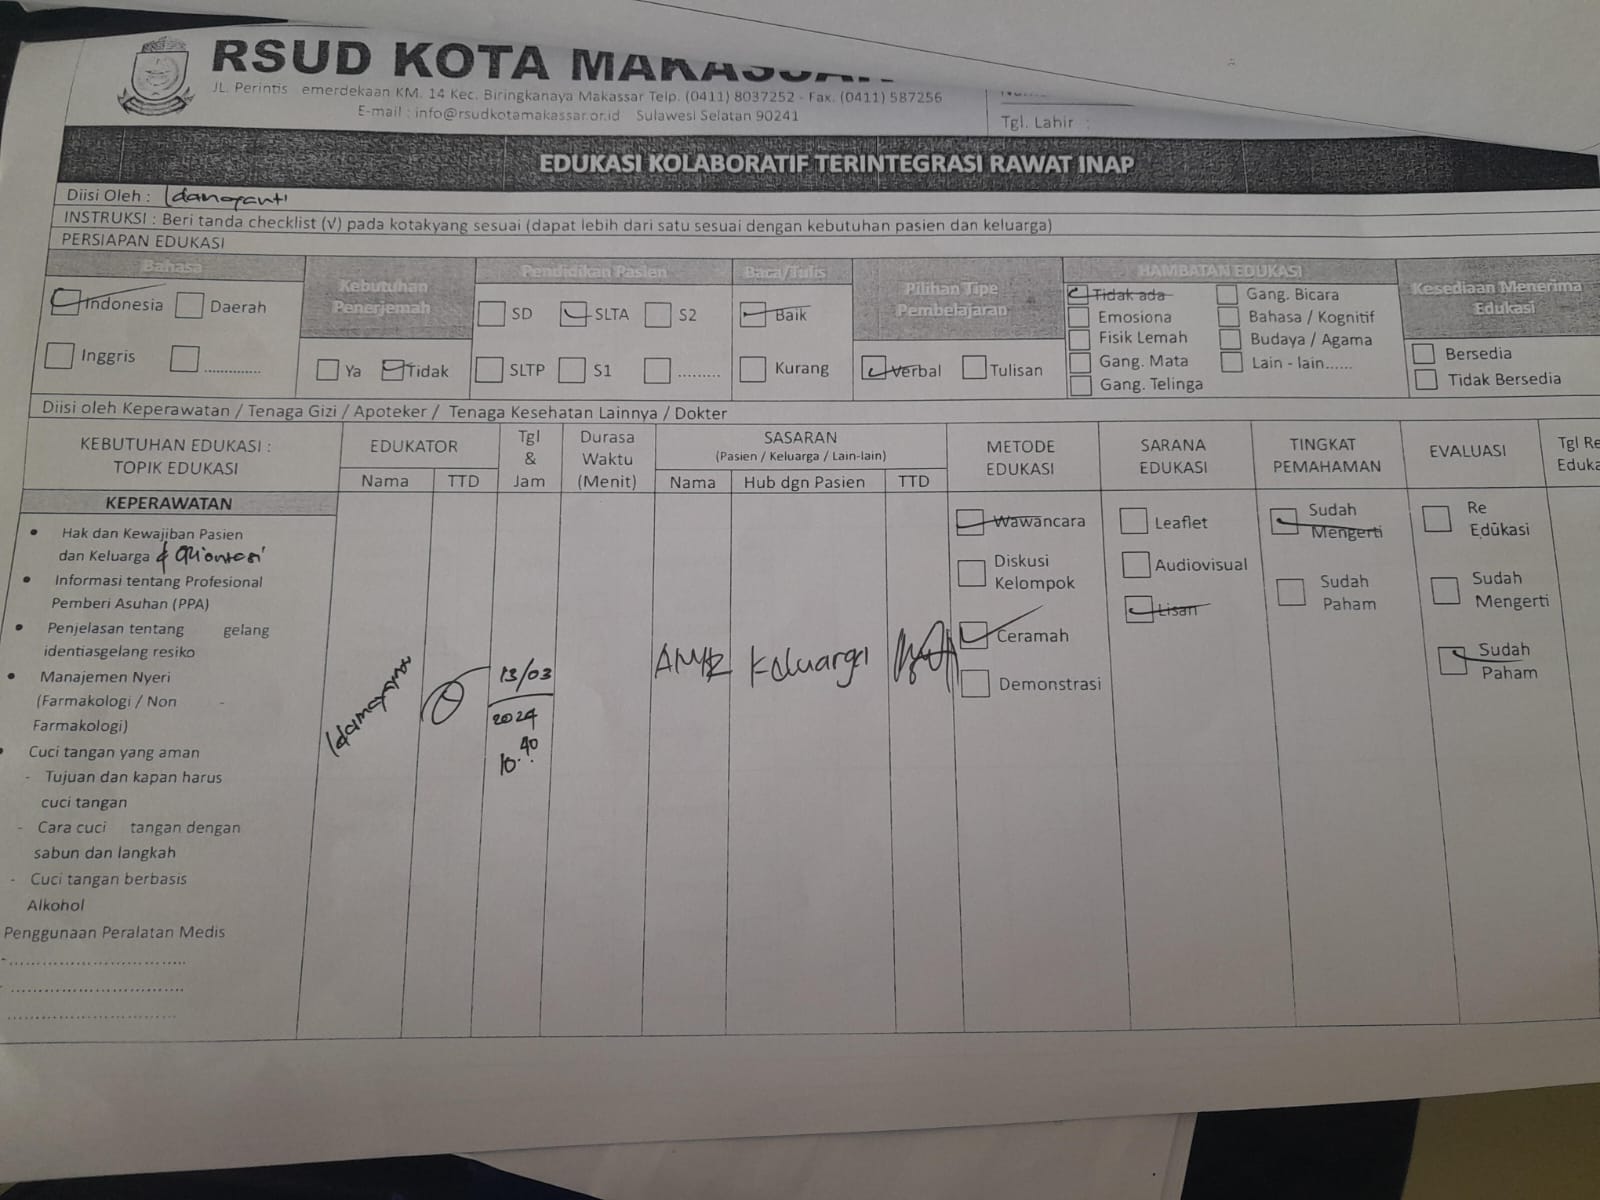 RSUD KOTA MAKASSAR
JL. Perintis emerdekaan KM. 14 Kec. Biringkanaya Makassar Telp. (0411) 8037252 - Fax. (0411) 587256
E-mail : info@rsudkotamakassar.or.id Sulawesi Selatan 90241
Tgl. Lahir :
EDUKASI KOLABORATIF TERINTEGRASI RAWAT INAP
Diisi Oleh :
INSTRUKSI : Beri tanda checklist (√) pada kotakyang sesuai (dapat lebih dari satu sesuai dengan kebutuhan pasien dan keluarga)
PERSIAPAN EDUKASI
Bahasa
Indonesia Daerah
Inggris ..............
Kebutuhan
Penerjemah
Ya Tidak
Pendidikan Pasien
SD SLTA S2
SLTP S1 .........
Baca/Tulis
Baik
Kurang
Pilihan Tipe
Pembelajaran
Verbal Tulisan
HAMBATAN EDUKASI
Tidak ada Gang. Bicara
Emosiona Bahasa / Kognitif
Fisik Lemah Budaya / Agama
Gang. Mata Lain - lain......
Gang. Telinga
Kesediaan Menerima
Edukasi
Bersedia
Tidak Bersedia
Diisi oleh Keperawatan / Tenaga Gizi / Apoteker / Tenaga Kesehatan Lainnya / Dokter
KEBUTUHAN EDUKASI :
TOPIK EDUKASI
EDUKATOR
Nama TTD
Tgl
&
Jam
Durasa
Waktu
(Menit)
SASARAN
(Pasien / Keluarga / Lain-lain)
Nama Hub dgn Pasien TTD
METODE
EDUKASI
SARANA
EDUKASI
TINGKAT
PEMAHAMAN
EVALUASI
Tgl Re
Eduka
KEPERAWATAN
• Hak dan Kewajiban Pasien
dan Keluarga & Orientasi
• Informasi tentang Profesional
Pemberi Asuhan (PPA)
• Penjelasan tentang gelang
identiasgelang resiko
• Manajemen Nyeri
(Farmakologi / Non
Farmakologi)
• Cuci tangan yang aman
- Tujuan dan kapan harus
cuci tangan
- Cara cuci tangan dengan
sabun dan langkah
- Cuci tangan berbasis
Alkohol
Penggunaan Peralatan Medis
-................................
-...............................
..............................
13/03
2024
10.40
Keluarga
Wawancara
Diskusi
Kelompok
Ceramah
Demonstrasi
Leaflet
Audiovisual
Lisan
Sudah
Mengerti
Sudah
Paham
Re
Edukasi
Sudah
Mengerti
Sudah
Paham